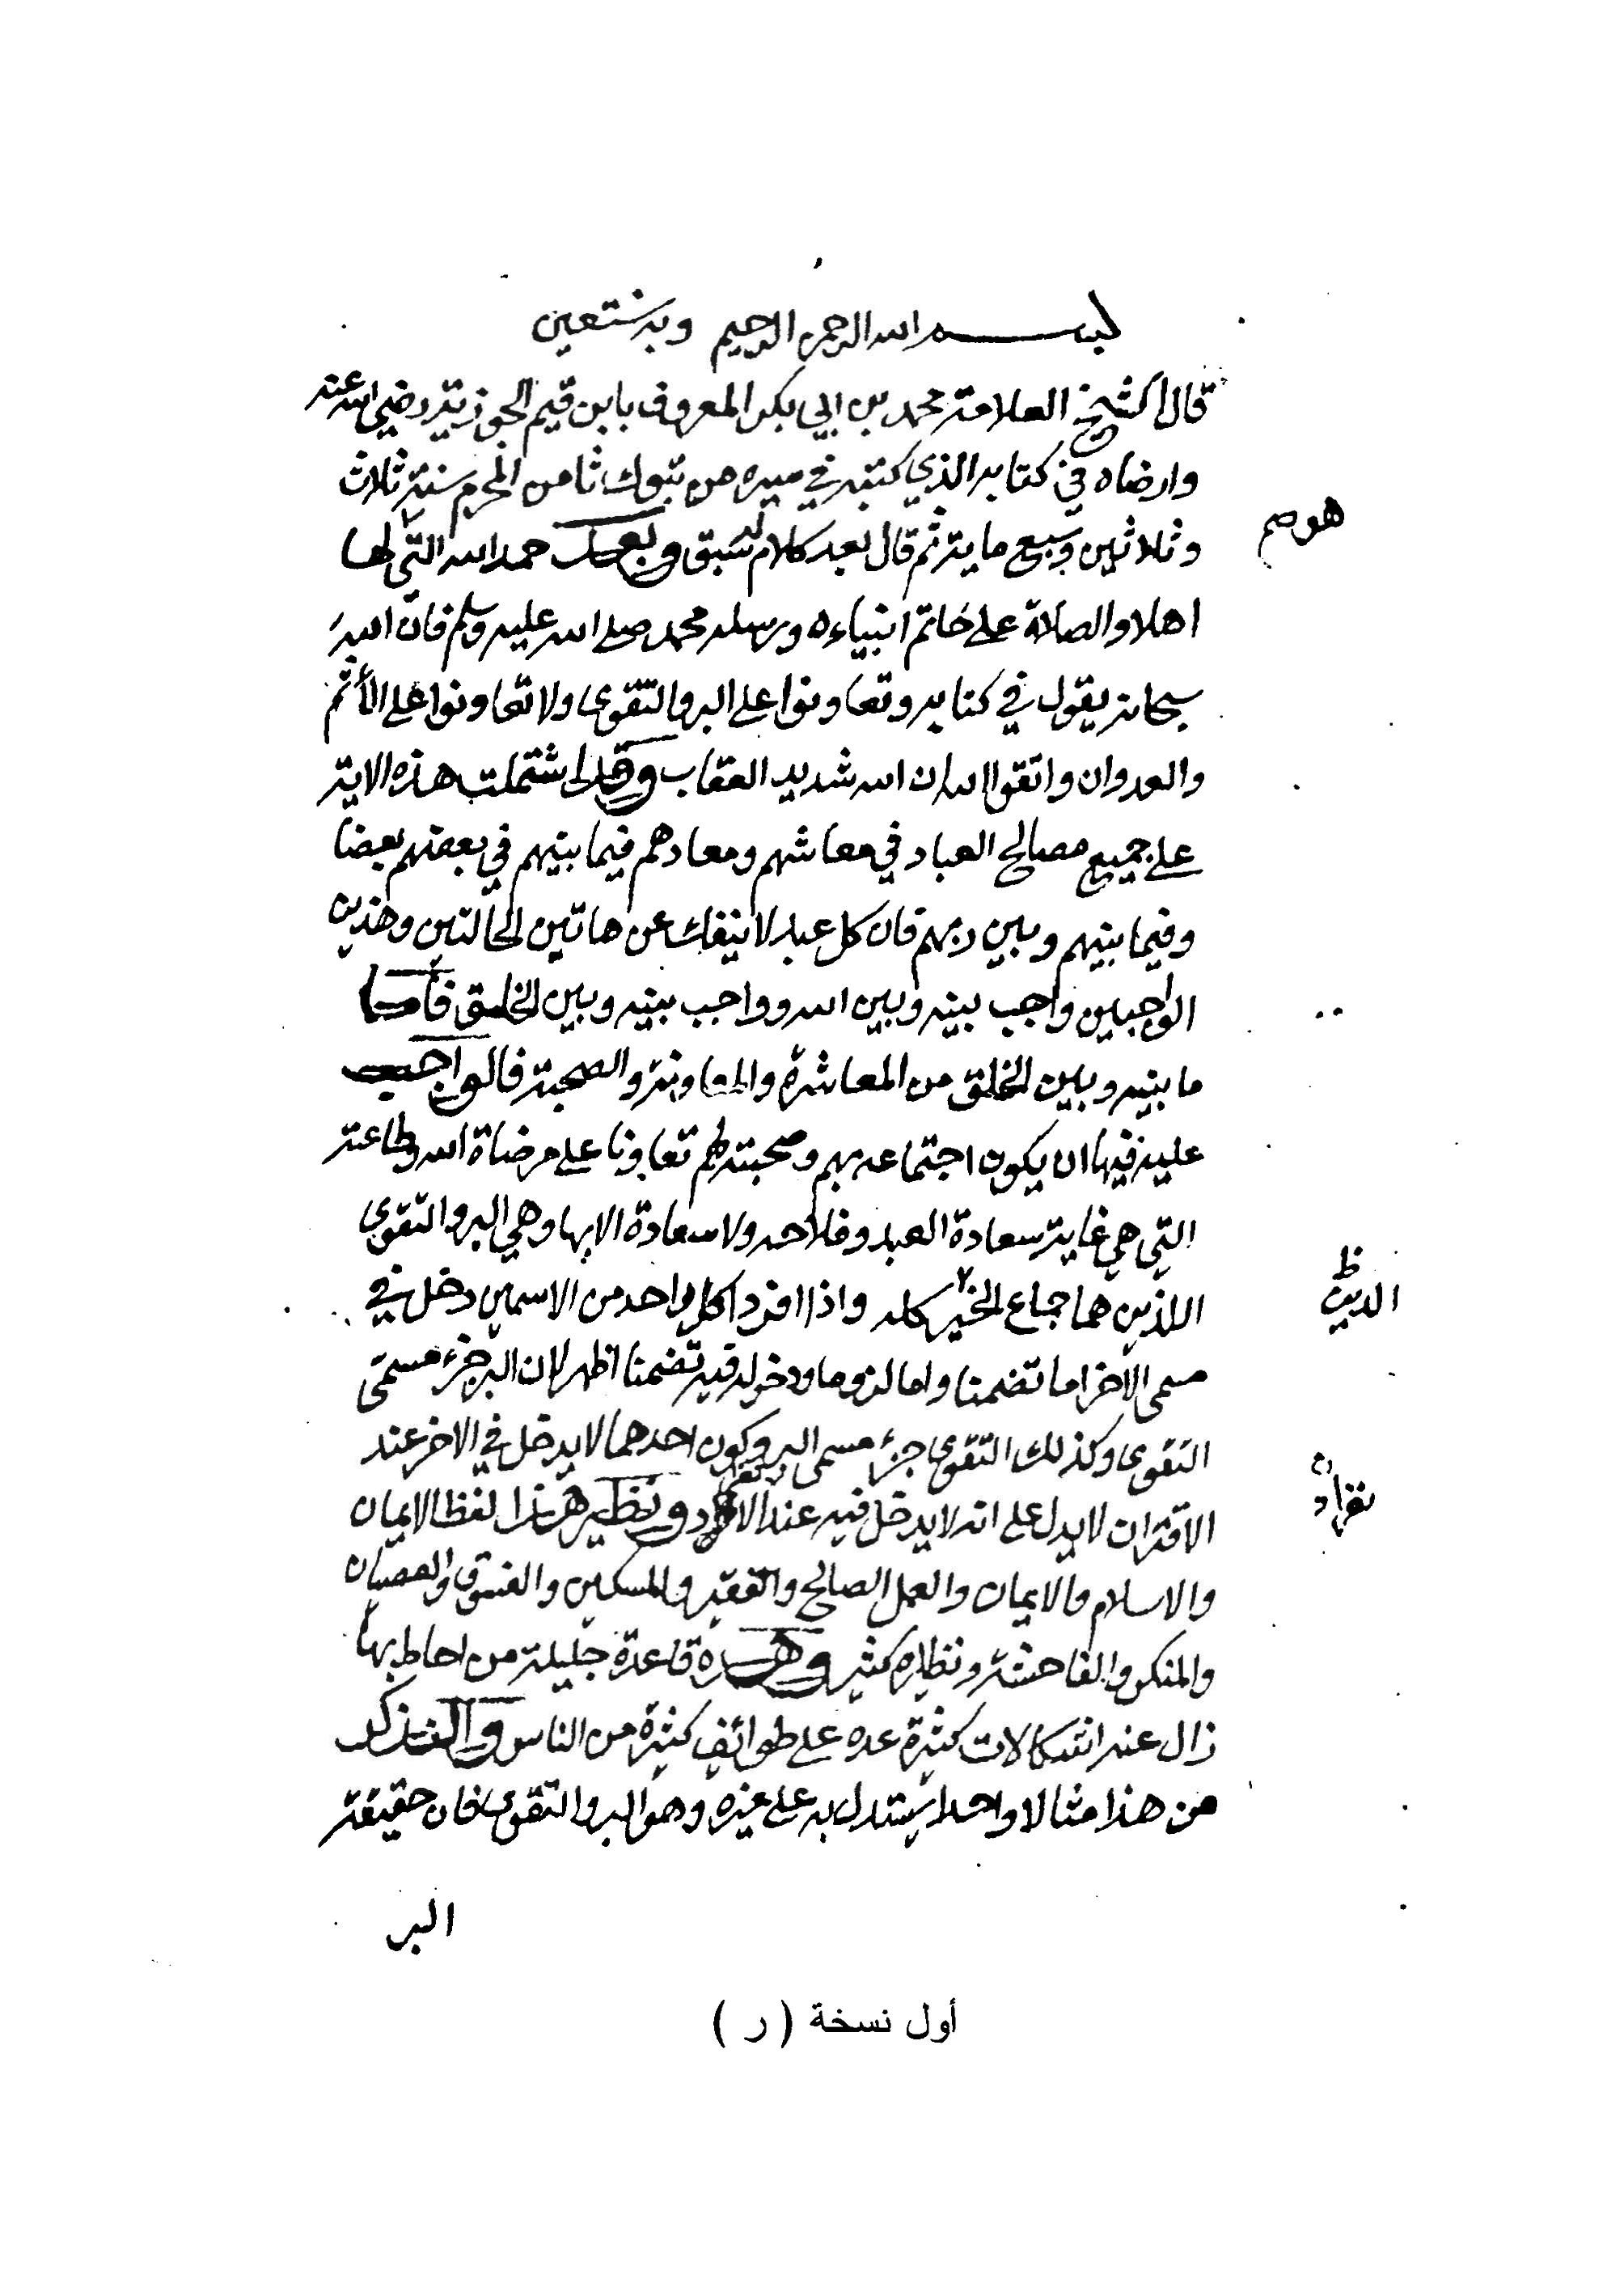 بسم الله الرحمن الرحيم وبه نستعين
قال الشيخ العلامة محمد بن ابي بكر المعروف بابن قيم الجوزية رضي الله عنه
وارضاه في كتابه الذي كتبه في سيره من تبوك ثامن المحرم سنة ثلاث
وثلاثين وسبع ماية ثم قال بعد كلام له سبق وبعد حمد الله التي لها
هو صم
اهلا والصلاة على خاتم انبياءه ورسله محمد صلى الله عليه وسلم فان الله
سبحانه يقول في كتابه وتعاونوا على البر والتقوى ولا تعاونوا على الأثم
والعدوان واتقوا الله ان الله شديد العقاب وقد اشتملت هذه الاية
على جميع مصالح العباد في معاشهم ومعادهم فيما بينهم في بعضهم بعضا
وفيما بينهم وبين ربهم فان كل عبد لا ينفك عن هاتين الحالتين وهذين
الواجبين واجب بينه وبين الله وواجب بينه وبين الخلق فأما
ما بينه وبين الخلق من المعاشرة والمعاونة والصحبة فالواجب
عليه فيها ان يكون اجتماعه بهم وصحبته لهم تعاونا على مرضاة الله وطاعته
التي هي غاية سعادة العبد وفلاحه ولا سعادة الا بها وهي البر والتقوى
اللذين هما جماع الخير كله واذا افرد كل واحد من الاسمين دخل في
ظ
الدين
مسمى الآخر اما تضمنا واما لزوما ودخوله فيه تضمنا اظهر لان البر جزء مسمى
التقوى وكذلك التقوى جزء مسمى البر وكون احدهما لا يدخل في الاخر عند
الاقتران لا يدل على انه لا يدخل فيه عند الا ونظير هذا لفظ الايمان
والاسلام والايمان والعمل الصالح والفقير والمسكين والفسوق والعصيان
والمنكر والفاحشة ونظايره كثير وهذه قاعدة جليلة من احاط بها
زال عنه اشكالات كثيرة عده على طوائف كثيرة من الناس ولنذكر
من هذا مثالا واحدا يستدل به على غيره وهو البر والتقوى فان حقيقة
البر
أول نسخة ( ر )